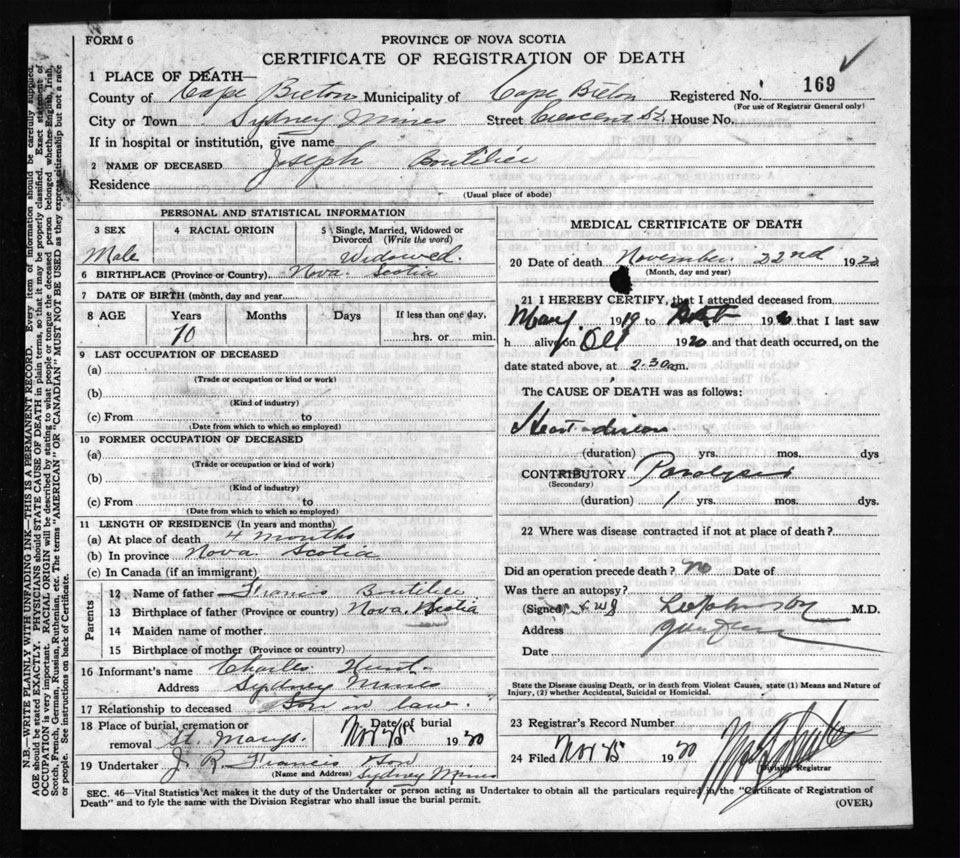 FORM 6
PROVINCE OF NOVA SCOTIA
CERTIFICATE OF REGISTRATION OF DEATH
1 PLACE OF DEATH—
County of Cape Breton Municipality of Cape Breton Registered No. 169
(For use of Registrar General only)
City or Town Sydney Mines Street Crescent St. House No.
If in hospital or institution, give name
2 NAME OF DECEASED Joseph Boutilier
Residence
(Usual place of abode)
PERSONAL AND STATISTICAL INFORMATION
3 SEX 4 RACIAL ORIGIN 5 Single, Married, Widowed or Divorced (Write the word)
Male Widowed.
6 BIRTHPLACE (Province or Country) Nova Scotia
7 DATE OF BIRTH (month, day and year)
8 AGE Years Months Days If less than one day,
70 hrs. or min.
9 LAST OCCUPATION OF DECEASED
(a)
(Trade or occupation or kind or work)
(b)
(Kind of industry)
(c) From to
(Date from which to which so employed)
10 FORMER OCCUPATION OF DECEASED
(a)
(Trade or occupation or kind of work)
(b)
(Kind of industry)
(c) From to
(Date from which to which so employed)
11 LENGTH OF RESIDENCE (In years and months)
(a) At place of death 4 months
(b) In province Nova Scotia
(c) In Canada (if an immigrant)
Parents
12 Name of father Francis Boutilier
13 Birthplace of father (Province or country) Nova Scotia
14 Maiden name of mother
15 Birthplace of mother (Province or country)
16 Informant's name Charles Hunt
Address Sydney Mines
17 Relationship to deceased Son in law.
18 Place of burial, cremation or removal St. Marys. Date of burial Nov 25 1920
19 Undertaker J. R. Francis Son
(Name and Address) Sydney Mines
MEDICAL CERTIFICATE OF DEATH
20 Date of death November 22nd 1920
(Month, day and year)
21 I HEREBY CERTIFY, that I attended deceased from
1919 to 192 that I last saw
h alive on Oct 1920 and that death occurred, on the
date stated above, at 2.30 a.m.
The CAUSE OF DEATH was as follows:
Heart disease
(duration) yrs. mos. dys
CONTRIBUTORY Paralysis
(Secondary)
(duration) 1 yrs. mos. dys.
22 Where was disease contracted if not at place of death?
Did an operation precede death? no Date of
Was there an autopsy?
(Signed) M.D.
Address
Date
State the Disease causing Death, or in death from Violent Causes, state (1) Means and Nature of
Injury, (2) whether Accidental, Suicidal or Homicidal.
23 Registrar's Record Number
24 Filed Nov 25 1920
Division Registrar
SEC. 46—Vital Statistics Act makes it the duty of the Undertaker or person acting as Undertaker to obtain all the particulars required in the "Certificate of Registration of
Death" and to fyle the same with the Division Registrar who shall issue the burial permit.
(OVER)
N.B.—WRITE PLAINLY WITH UNFADING INK—THIS IS A PERMANENT RECORD. Every item of information should be carefully supplied.
AGE should be stated EXACTLY. PHYSICIANS should STATE CAUSE OF DEATH in plain terms, so that it may be properly classified. Exact statement of
OCCUPATION is very important. RACIAL ORIGIN will be described by stating to what people or tongue the deceased person belonged whether English, Irish,
Scotch, French, German, Russian, Ruthenian, etc. The terms "AMERICAN" OR "CANADIAN" MUST NOT BE USED as they express citizenship but not a race
or people. See instructions on back of Certificate.